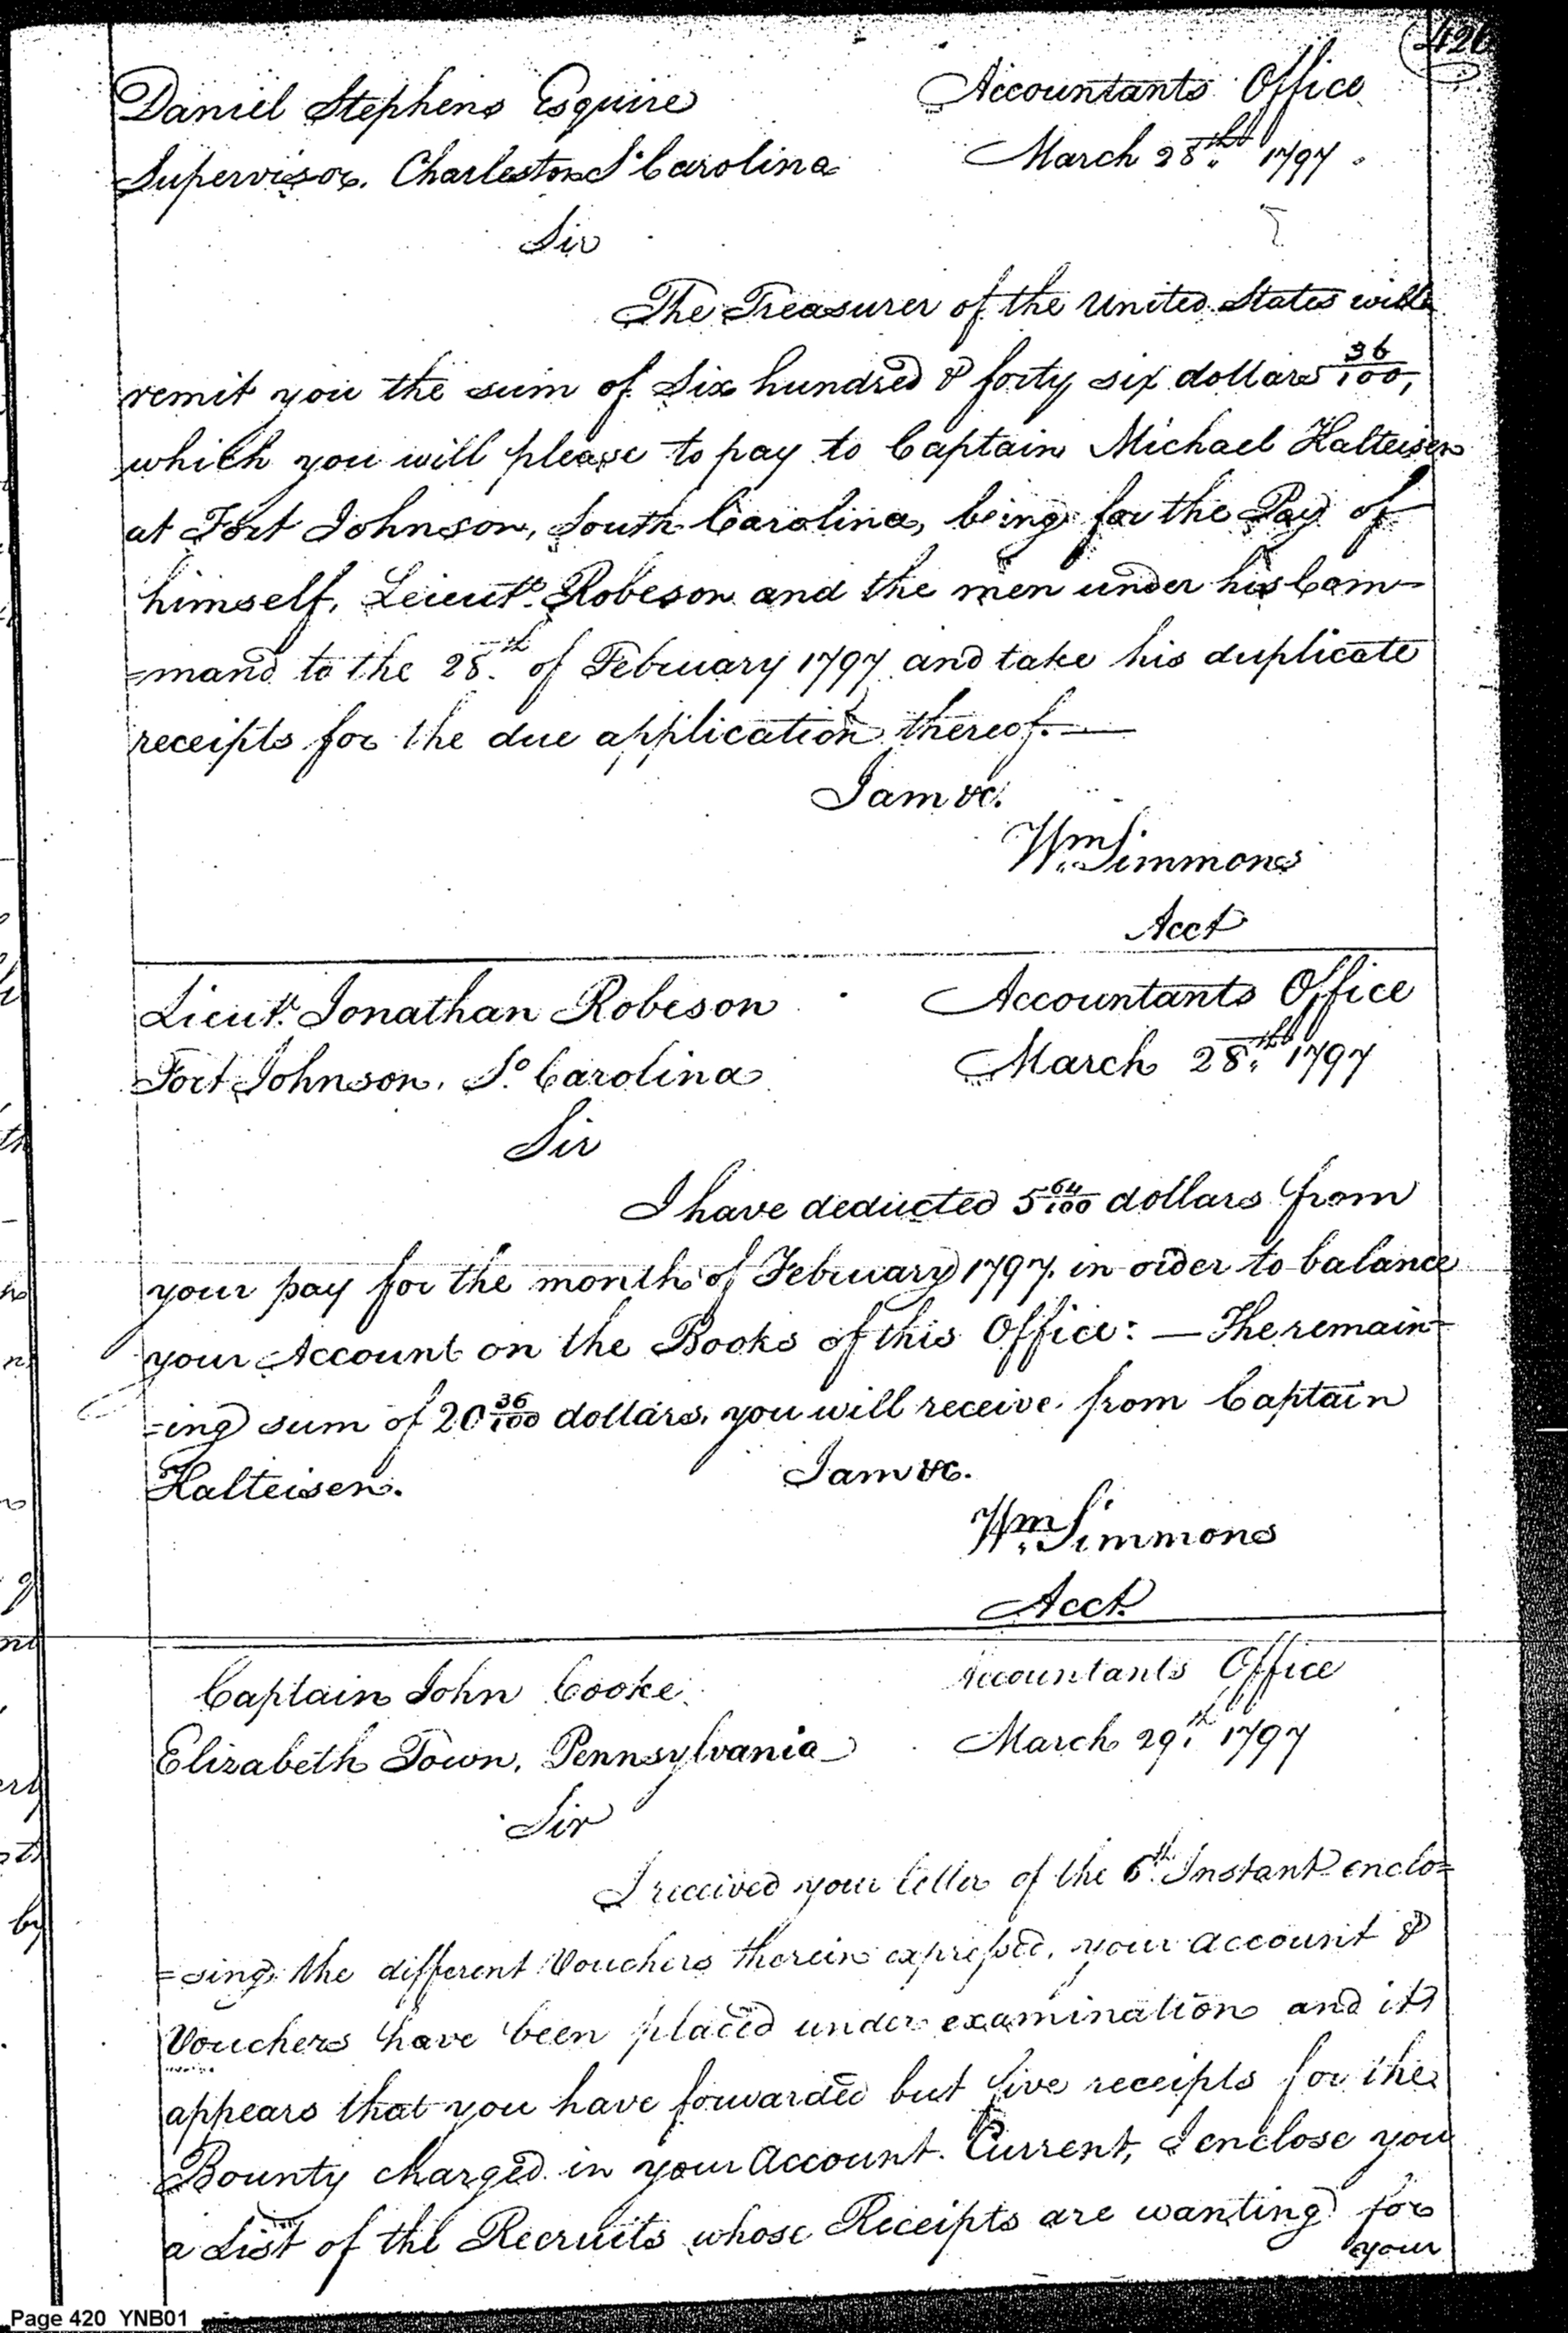 420
Daniel Stephens Esquire Accountants Office
Supervisor. Charleston So Carolina March 28th 1797.
Sir
The Treasurer of the United States will
remit you the sum of Six hundred & forty six dollars 36/100,
which you will please to pay to Captain Michael Kalteisen
at Fort Johnson, South Carolina, being for the Pay of
himself, Lieut. Robeson and the men under his Com-
=mand to the 28th of February 1797 and take his duplicate
receipts for the due application thereof. —
I am &c.
Wm Simmons
Acct
Lieut. Jonathan Robeson Accountants Office
Fort Johnson. So Carolina March 28th 1797
Sir
I have deducted 5 64/100 dollars from
your pay for the month of February 1797. in order to balance
your Account on the Books of this Office: — The remain-
=ing sum of 20 36/100 dollars, you will receive from Captain
Kalteisen. I am &c.
Wm Simmons
Acct.
Captain John Cooke. Accountants Office
Elizabeth Town, Pennsylvania March 29th 1797
Sir
I received your letter of the 6th Instant enclo=
=sing the different Vouchers therein expressed, your account &
Vouchers have been placed under examination and it
appears that you have forwarded but five receipts for the
Bounty charged in your Account Current, I enclose you
a List of the Recruits whose Receipts are wanting for
your
Page 420 YNB01